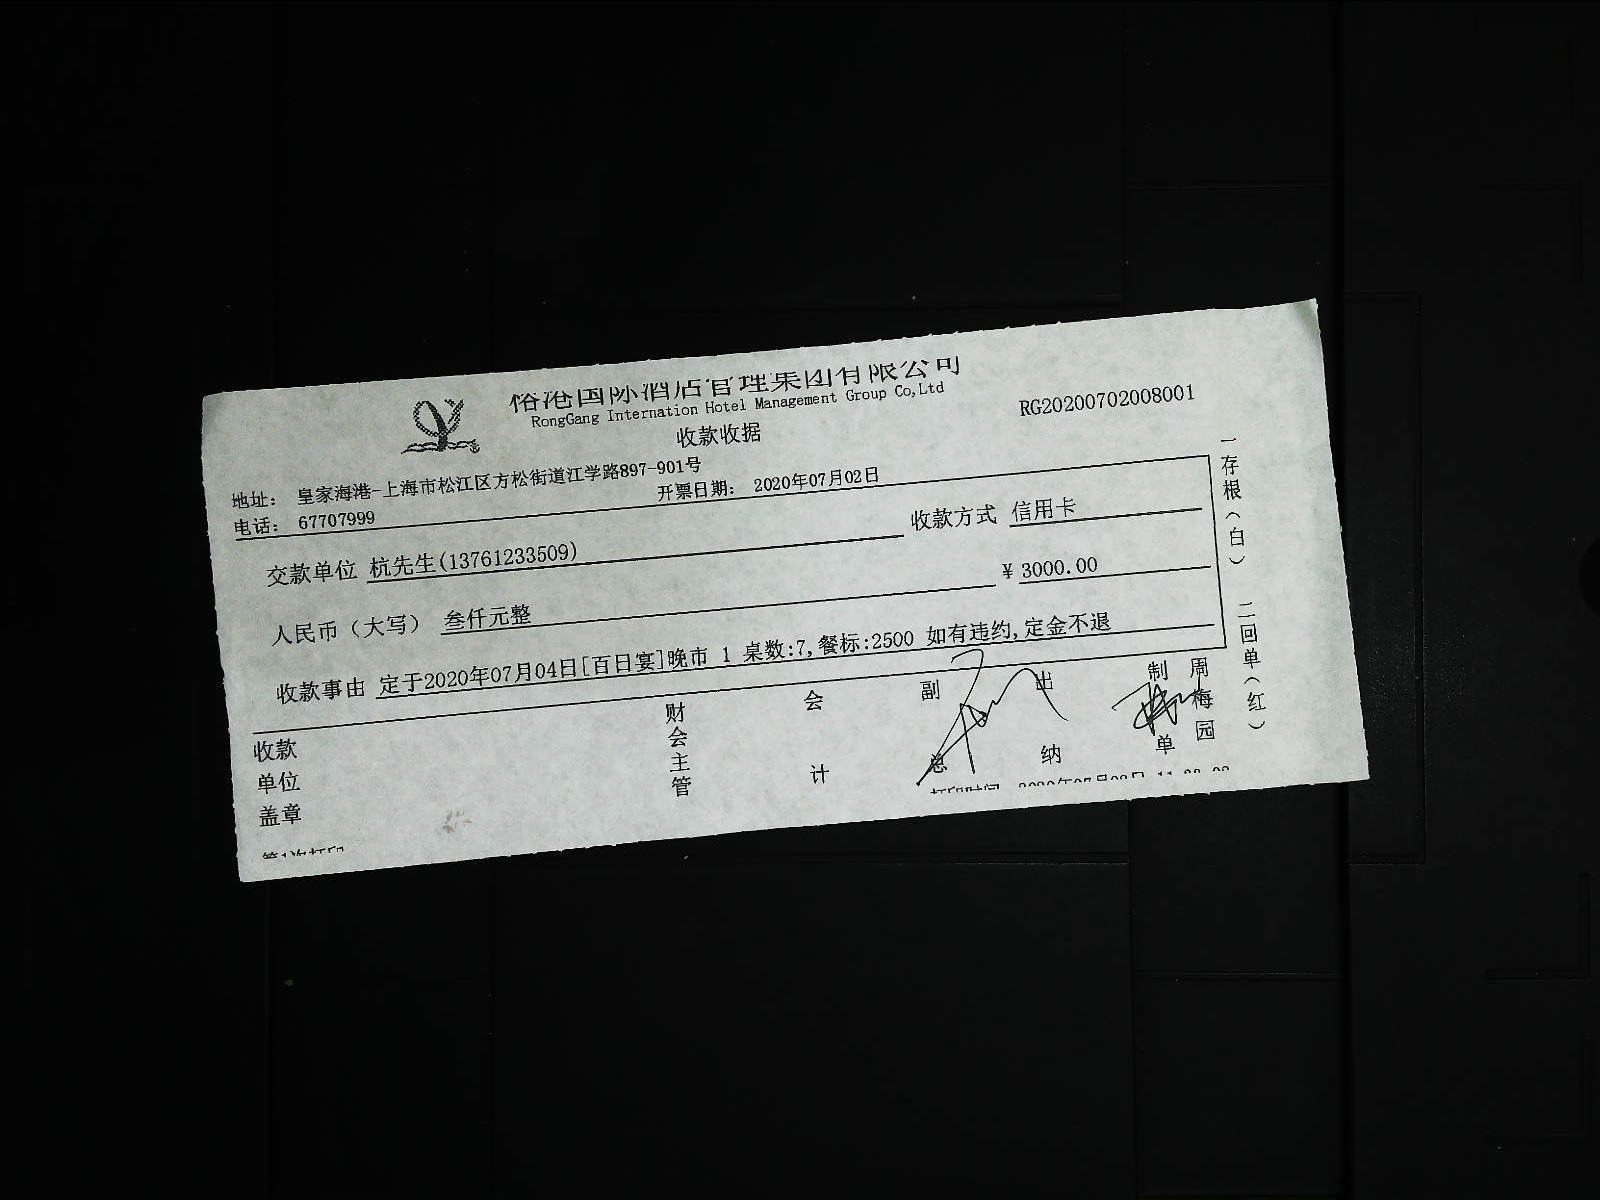 国际酒店管理集团有限公司
RongGang Internation Hotel Management Group Co,Ltd
收款收据
RG20200702008001
地址： 皇家海港-上海市松江区方松街道江学路897-901号
电话： 67707999
开票日期： 2020年07月02日
交款单位 杭先生(13761233509)
收款方式 信用卡
人民币（大写） 叁仟元整
¥ 3000.00
收款事由 定于2020年07月04日[百日宴]晚市 1 桌数:7,餐标:2500 如有违约,定金不退
收款单位盖章
财会主管
会计
副总
出纳
制单
周梅园
一存根（白）
二回单（红）
第1次打印
打印时间